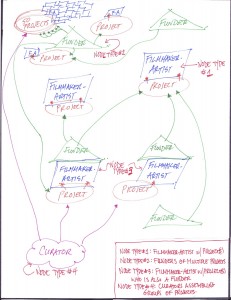 PROJECTS
FUNDER
FUNDER
PROJECT
PROJECT
NODE TYPE #2
FUNDER
FILMMAKER-
ARTIST
NODE TYPE
#1
PROJECT
FILMMAKER-
ARTIST
PROJECT
FUNDER
FUNDER
FILMMAKER-
ARTIST
NODE
TYPE #3
FILMMAKER-
ARTIST
PROJECT
PROJECT
FUNDER
CURATOR
NODE TYPE #4
NODE TYPE #1: FILMMAKER-ARTIST W/ PROJECT(S)
NODE TYPE #2: FUNDERS OF MULTIPLE PROJECTS
NODE TYPE #3: FILMMAKER-ARTIST W/ PROJECT(S)
WHO IS ALSO A FUNDER
NODE TYPE #4: CURATORS ASSEMBLING
GROUPS OF PROJECTS